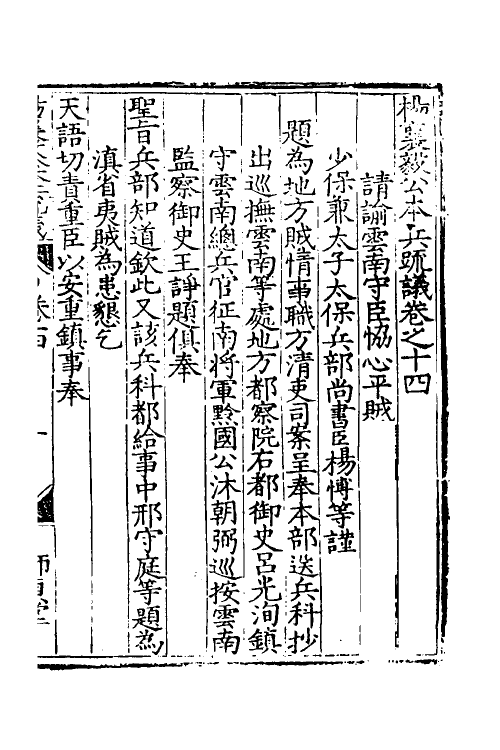 楊襄毅公本兵疏議卷之十四
請諭雲南守臣恊心平賊
少保兼太子太保兵部尚書臣楊愽等謹
題為地方賊情事職方清吏司案呈奉本部送兵科抄
出巡撫雲南等處地方都察院右都御史呂光洵鎮
守雲南總兵官征南將軍黔國公沐朝弼巡按雲南
監察御史王諍題俱奉
聖旨兵部知道欽此又該兵科都給事中邢守庭等題為
滇省夷賊為患懇乞
天語切責重臣以安重鎮事奉
卷十四 一 師貞堂